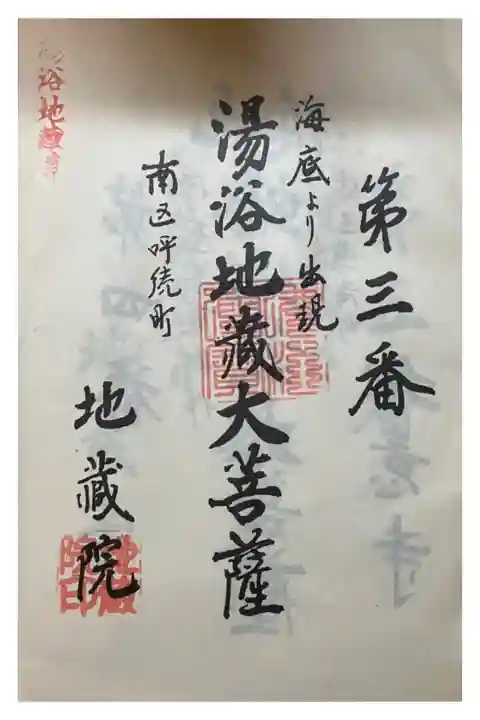 第三番
海底より出現
湯浴地蔵大菩薩
南区呼続町
地蔵院
浴地蔵